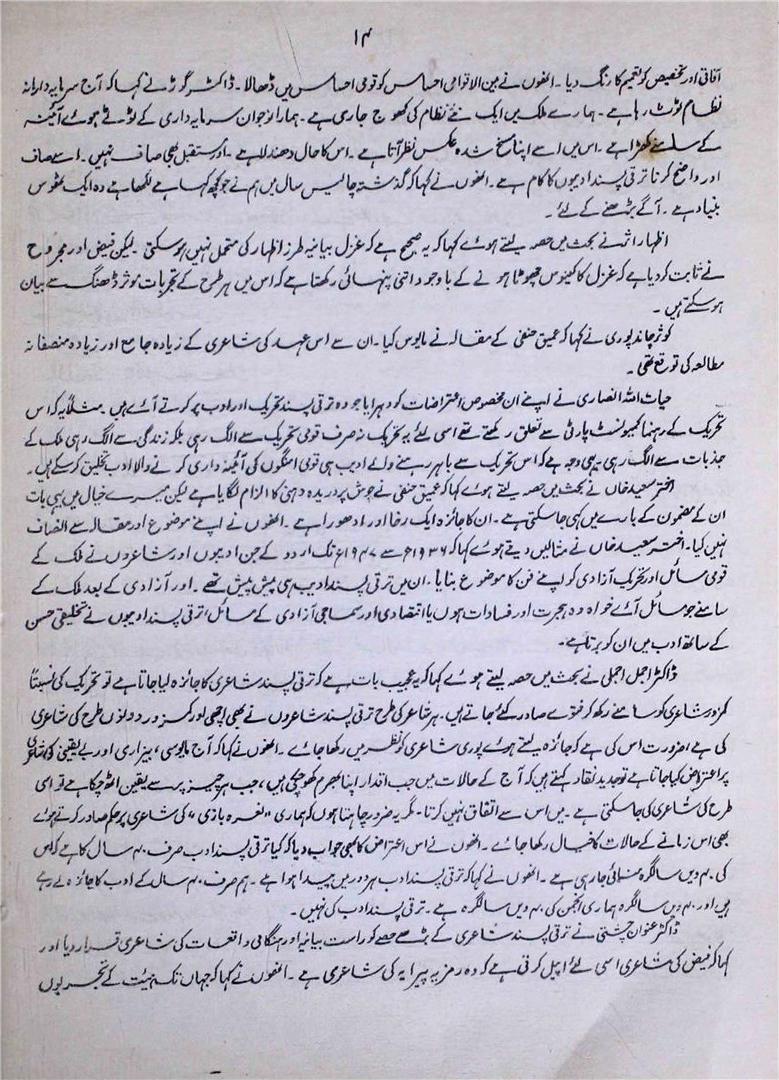 ۱۴
آفاقی اور تخصیص کو تعمیم کا رنگ دیا ۔ انھوں نے بین الاقوامی احساس کو قومی احساس میں ڈھالا ۔ ڈاکٹر گوڑ نے کہا کہ آج سرمایہ دارانہ
نظام ٹوٹ رہا ہے ۔ ہمارے ملک میں ایک نئے نظام کی کھوج جاری ہے ۔ ہمارا نوجوان سرمایہ داری کے ٹوٹے ہوئے آئینہ
کے سامنے کھڑا ہے ۔ اس میں اسے اپنا مسخ شدہ عکس نظر آتا ہے ۔ اس کا حال دھندلا ہے ۔ اور مستقبل بھی صاف نہیں ۔ اسے صاف
اور واضح کرنا ترقی پسند ادیبوں کا کام ہے ۔ انھوں نے کہا کہ گذشتہ چالیس سال میں ہم نے جو کچھ کہا ہے لکھا ہے وہ ایک ٹھوس
بنیاد ہے ۔ آگے بڑھنے کے لئے ۔
اظہار اثر نے بحث میں حصہ لیتے ہوئے کہا کہ یہ صحیح ہے کہ غزل بیانیہ طرز اظہار کی متحمل نہیں ہو سکتی ۔ لیکن فیض اور مجروح
نے ثابت کر دیا ہے کہ غزل کا کینوس چھوٹا ہونے کے باوجود اتنی پنہائی رکھتا ہے کہ اس میں ہر طرح کے تجربات موثر ڈھنگ سے بیان
ہو سکتے ہیں ۔
کوثر چاندپوری نے کہا کہ عمیق حنفی کے مقالہ نے مایوس کیا ۔ ان سے اس عہد کی شاعری کے زیادہ جامع اور زیادہ منصفانہ
مطالعہ کی توقع تھی ۔
حیات اللہ انصاری نے اپنے ان مخصوص اعتراضات کو دہرایا جو وہ ترقی پسند تحریک اور ادب پر کرتے آئے ہیں ۔ مثلاً یہ کہ اس
تحریک کے رہنما کمیونسٹ پارٹی سے تعلق رکھتے تھے اسی لئے یہ تحریک نہ صرف قومی تحریک سے الگ رہی بلکہ زندگی سے الگ رہی ملک کے
جذبات سے الگ رہی یہی وجہ ہے کہ اس تحریک سے باہر رہنے والے ادیب ہی قومی امنگوں کی آئینہ داری کرنے والا ادب تخلیق کر سکے ہیں ۔
اختر سعید خاں نے بحث میں حصہ لیتے ہوئے کہا کہ عمیق حنفی نے جوش پر دریدہ دہنی کا الزام لگایا ہے لیکن میرے خیال میں یہی بات
ان کے مضمون کے بارے میں کہی جا سکتی ہے ۔ ان کا جائزہ ایک رخا اور ادھورا ہے ۔ انھوں نے اپنے موضوع اور مقالہ سے انصاف
نہیں کیا ۔ اختر سعید خاں نے مثالیں دیتے ہوئے کہا کہ ۱۹۳۶ء سے ۱۹۴۷ء تک اردو کے جن ادیبوں اور شاعروں نے ملک کے
قومی مسائل اور تحریک آزادی کو اپنے فن کا موضوع بنایا ۔ ان میں ترقی پسند ادیب ہی پیش پیش تھے ۔ اور آزادی کے بعد ملک کے
سامنے جو مسائل آئے خواہ وہ ہجرت اور فسادات ہوں یا اقتصادی اور سماجی آزادی کے مسائل ترقی پسند ادیبوں نے تخلیقی حسن
کے ساتھ ادب میں ان کو برتا ہے ۔
ڈاکٹر اجمل اجملی نے بحث میں حصہ لیتے ہوئے کہا کہ یہ عجیب بات ہے کہ ترقی پسند شاعری کا جائزہ لیا جاتا ہے تو تحریک کی نسبتاً
کمزور شاعری کو سامنے رکھ کر فتوے صادر کئے جاتے ہیں ۔ ہر شاعر کی طرح ترقی پسند شاعروں نے بھی اچھی اور کمزور دونوں طرح کی شاعری
کی ہے ضرورت اس کی ہے کہ جائزہ لیتے ہوئے پوری شاعری کو نظر میں رکھا جائے ۔ انھوں نے کہا کہ آج مایوسی، بیزاری اور بے یقینی کی شاعری
پر اعتراض کیا جاتا ہے تو جدید نقاد کہتے ہیں کہ آج کے حالات میں جب اقدار اپنا بھرم کھو چکی ہیں، جب ہر چیز پر سے یقین اٹھ چکا ہے تو اسی
طرح کی شاعری کی جا سکتی ہے ۔ میں اس سے اتفاق نہیں کرتا ۔ مگر یہ ضرور چاہتا ہوں کہ ہماری ”نعرہ بازی“ کی شاعری پر حکم صادر کرتے ہوئے
بھی اس زمانے کے حالات کا خیال رکھا جائے ۔ انھوں نے اس اعتراض کا بھی جواب دیا کہ کیا ترقی پسند ادب صرف ۴۰ سال کا ہے کہ اس
کی ۴۰ ویں سالگرہ منائی جا رہی ہے ۔ انھوں نے کہا کہ ترقی پسند ادب ہر دور میں پیدا ہوا ہے ۔ ہم صرف ۴۰ سال کے ادب کا جائزہ لے رہے
ہیں اور ۴۰ ویں سالگرہ ہماری انجمن کی ۴۰ ویں سالگرہ ہے ۔ ترقی پسند ادب کی نہیں ۔
ڈاکٹر عنوان چشتی نے ترقی پسند شاعری کے بڑے حصے کو راست بیانیہ اور ہنگامی واقعات کی شاعری قرار دیا اور
کہا کہ فیض کی شاعری اسی لئے اپیل کرتی ہے کہ وہ رمزیہ پیرایہ کی شاعری ہے ۔ انھوں نے کہا کہ جہاں تک ہیئت کے تجربوں